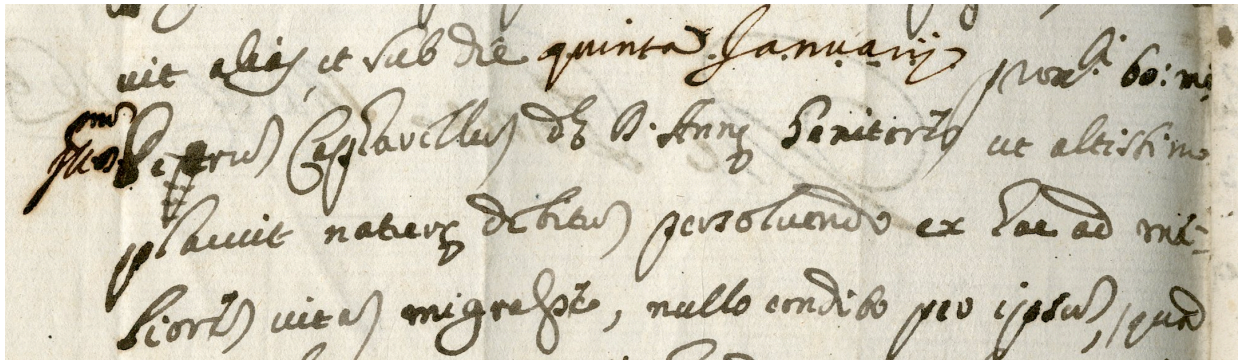 uit alias, et sub die quinta Januarij prox.i bo: m:
Petrus Capravellus de B. Annę Genitoris ut altissimo
placuit naturę debitum persolvendo ex hac ad me-
liorem vitam migrasset, nullo condito per ipsum, quod